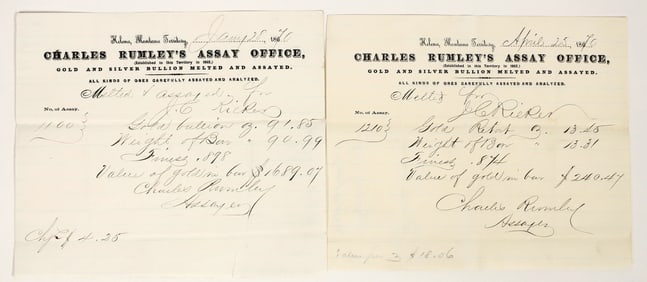 Helena, Montana Territory, Jany 28 1876
CHARLES RUMLEY'S ASSAY OFFICE,
(Established in this Territory in 1865.)
GOLD AND SILVER BULLION MELTED AND ASSAYED.
ALL KINDS OF ORES CAREFULLY ASSAYED AND ANALYZED.
Melted & assayed for
No. of Assay. J. C. Ricker
1100 Gold bullion oz. 91.85
Weight of Bar " 90.99
Finess .898
Value of gold in bar $1689.07
Charles Rumley
Assayer
Chg $ 4.25
Helena, Montana Territory, April 25 1876
CHARLES RUMLEY'S ASSAY OFFICE,
(Established in this Territory in 1865.)
GOLD AND SILVER BULLION MELTED AND ASSAYED.
ALL KINDS OF ORES CAREFULLY ASSAYED AND ANALYZED.
Melted for
No. of Assay. J C Ricker
1210 Gold Retort oz. 13.45
Weight of Bar " 13.31
Finess .874
Value of gold in bar $240.47
Charles Rumley
Assayer
Value per oz $18.06